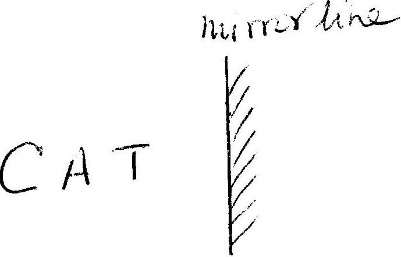 mirror line
C A T